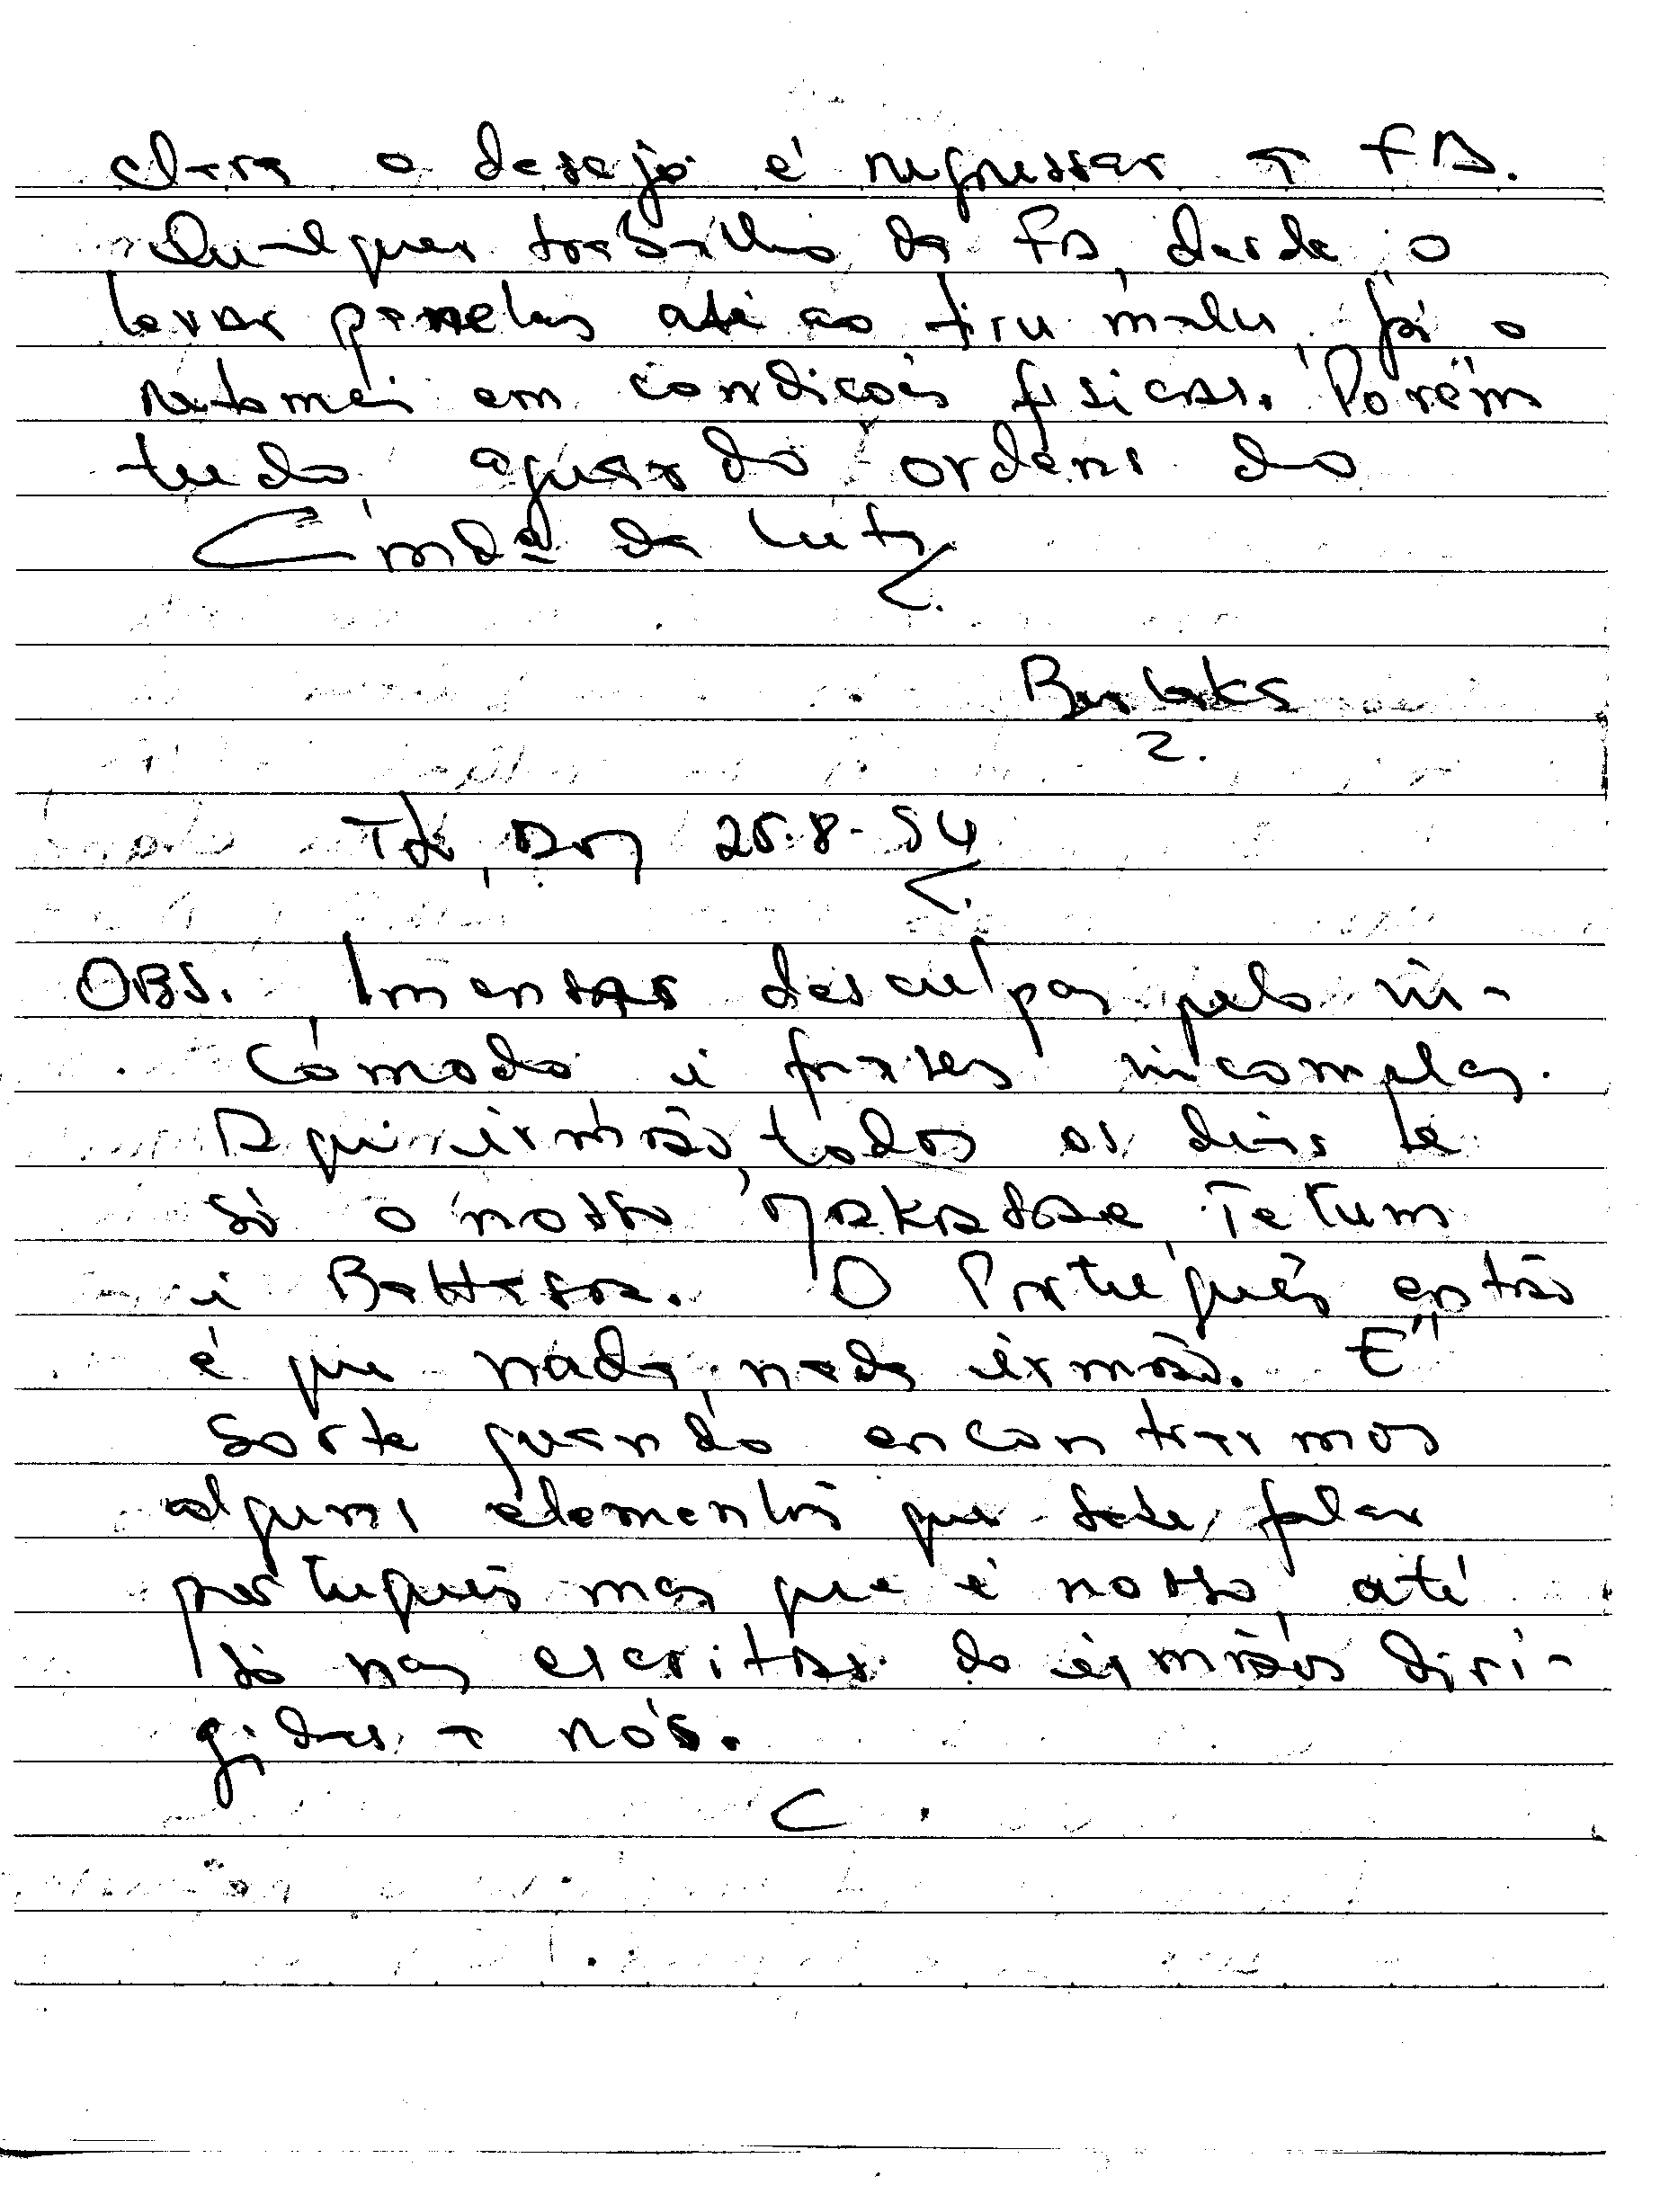 clara o desejo é regressar a FA.
Qualquer trabalho da FA, desde o
levar panelas até ao tiru malu, já o
retomei em condições fisicas. Porém
tudo, aguardo ordens do
Cmdª da Luta
2.
OBS. Imensas desculpas pelo in-
cómodo i frases incomplas.
Aqui irmão, todos os dias é
só o nosso Makasae, Tetum
i Bahasa. O Português então
é que nada, nada irmão. É
sorte quando encontrarmos
alguns elementos que sabe falar
português mas que é nosso, até
só nas escritas do irmãos diri-
gidas a nós.